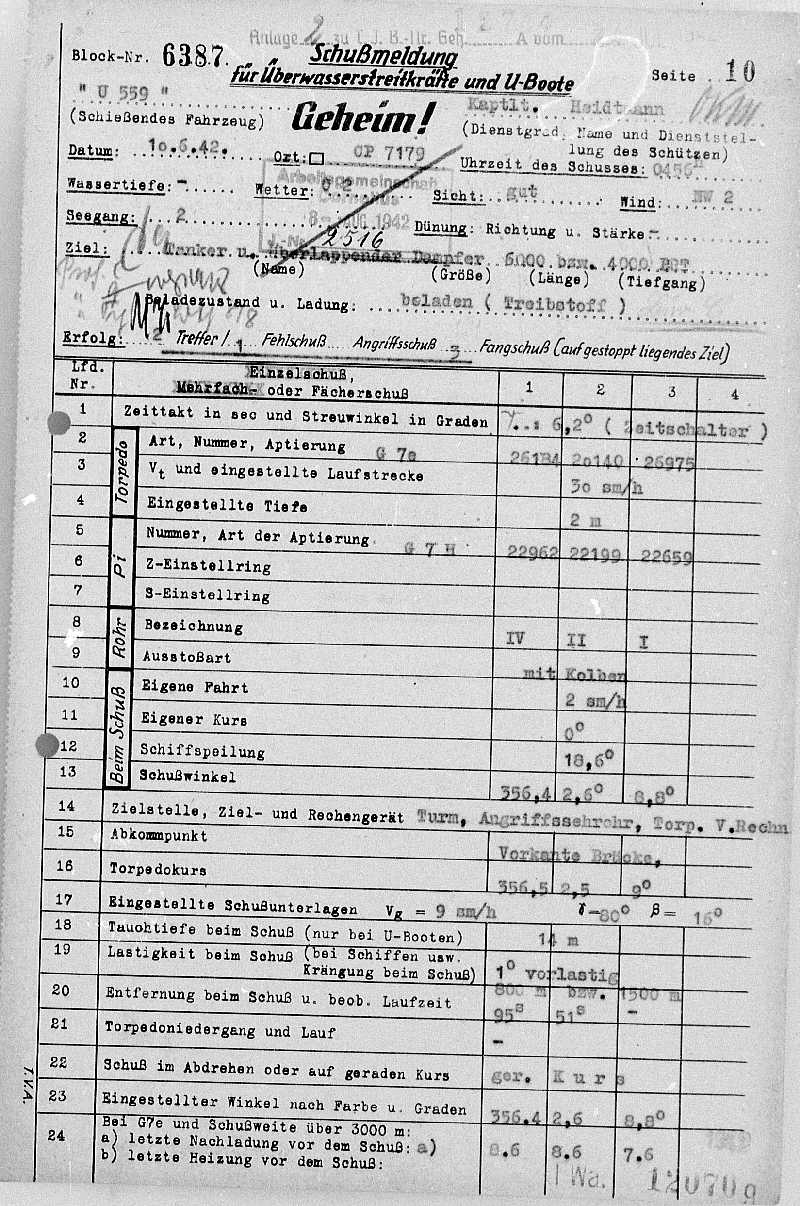 Anlage 2 zu T.J.B.-Nr. Geh. A vom
Block-Nr. 6387. Schußmeldung Seite 10
für Überwasserstreitkräfte und U-Boote
" U 559 " Geheim! Kaptlt. Heidtmann
(Schießendes Fahrzeug) (Dienstgrad, Name und Dienststel-
lung des Schützen)
Datum: 10.6.42. Ort: CP 7179 Uhrzeit des Schusses: 0456
Arbeitsgemeinschaft
Cornelius
Wassertiefe: - Wetter: Sicht: gut Wind: NW 2
8- AUG 1942
Seegang: 2 Dünung: Richtung u. Stärke -
J.-Nr. 2516
Ziel: Tanker u. überlappender Dampfer 6000 bzw. 4000 BRT
(Name) (Größe) (Länge) (Tiefgang)
Beladezustand u. Ladung: beladen ( Treibstoff )
Erfolg: 2 Treffer / 1 Fehlschuß Angriffsschuß 3 Fangschuß (auf gestoppt liegendes Ziel)
Lfd. Nr. Einzelschuß, Mehrfach- oder Fächerschuß 1 2 3 4
1 Zeittakt in sec und Streuwinkel in Graden 6,2° ( Zeitschalter )
Torpedo
2 Art, Nummer, Aptierung G 7e 26184 20140 26975
3 Vt und eingestellte Laufstrecke 30 sm/h
4 Eingestellte Tiefe 2 m
Pi
5 Nummer, Art der Aptierung G 7 H 22962 22199 22659
6 Z-Einstellring
7 S-Einstellring
Rohr
8 Bezeichnung IV II I
9 Ausstoßart mit Kolben
Beim Schuß
10 Eigene Fahrt 2 sm/h
11 Eigener Kurs 0°
12 Schiffspeilung 18,6°
13 Schußwinkel 356,4 2,6° 8,8°
14 Zielstelle, Ziel- und Rechengerät Turm, Angriffssehrohr, Torp. V.Rechn
15 Abkommpunkt Vorkante Brücke,
16 Torpedokurs 356,5 2,5 9°
17 Eingestellte Schußunterlagen Vg = 9 sm/h γ -80° β = 16°
18 Tauchtiefe beim Schuß (nur bei U-Booten) 14 m
19 Lastigkeit beim Schuß (bei Schiffen usw.
Krängung beim Schuß) 1° vorlastig
20 Entfernung beim Schuß u. beob. Laufzeit 800 m bzw. 1500 m
95s 51s -
21 Torpedoniedergang und Lauf -
22 Schuß im Abdrehen oder auf geraden Kurs ger. Kurs
23 Eingestellter Winkel nach Farbe u. Graden 356.4 2,6 8,8°
24 Bei G7e und Schußweite über 3000 m:
a) letzte Nachladung vor dem Schuß: a) 8.6 8.6 7.6
b) letzte Heizung vor dem Schuß:
1 Wa. 120709
T.V.A.